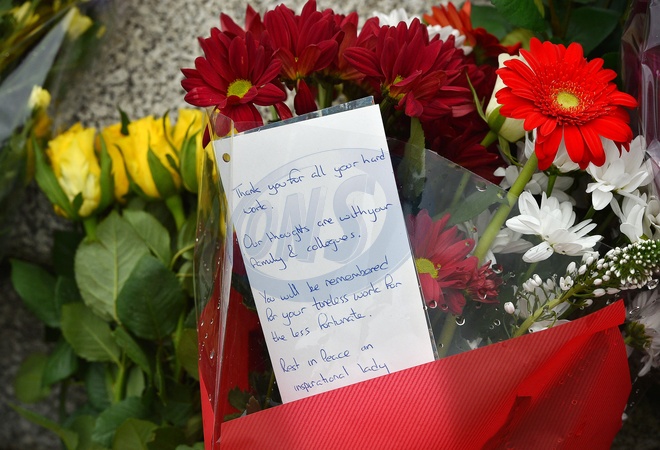 Thank you for all your hard
work.
Our thoughts are with your
family & collegues.
You will be remembered
for your tireless work for
the less fortunate.
Rest in Peace an
inspirational lady